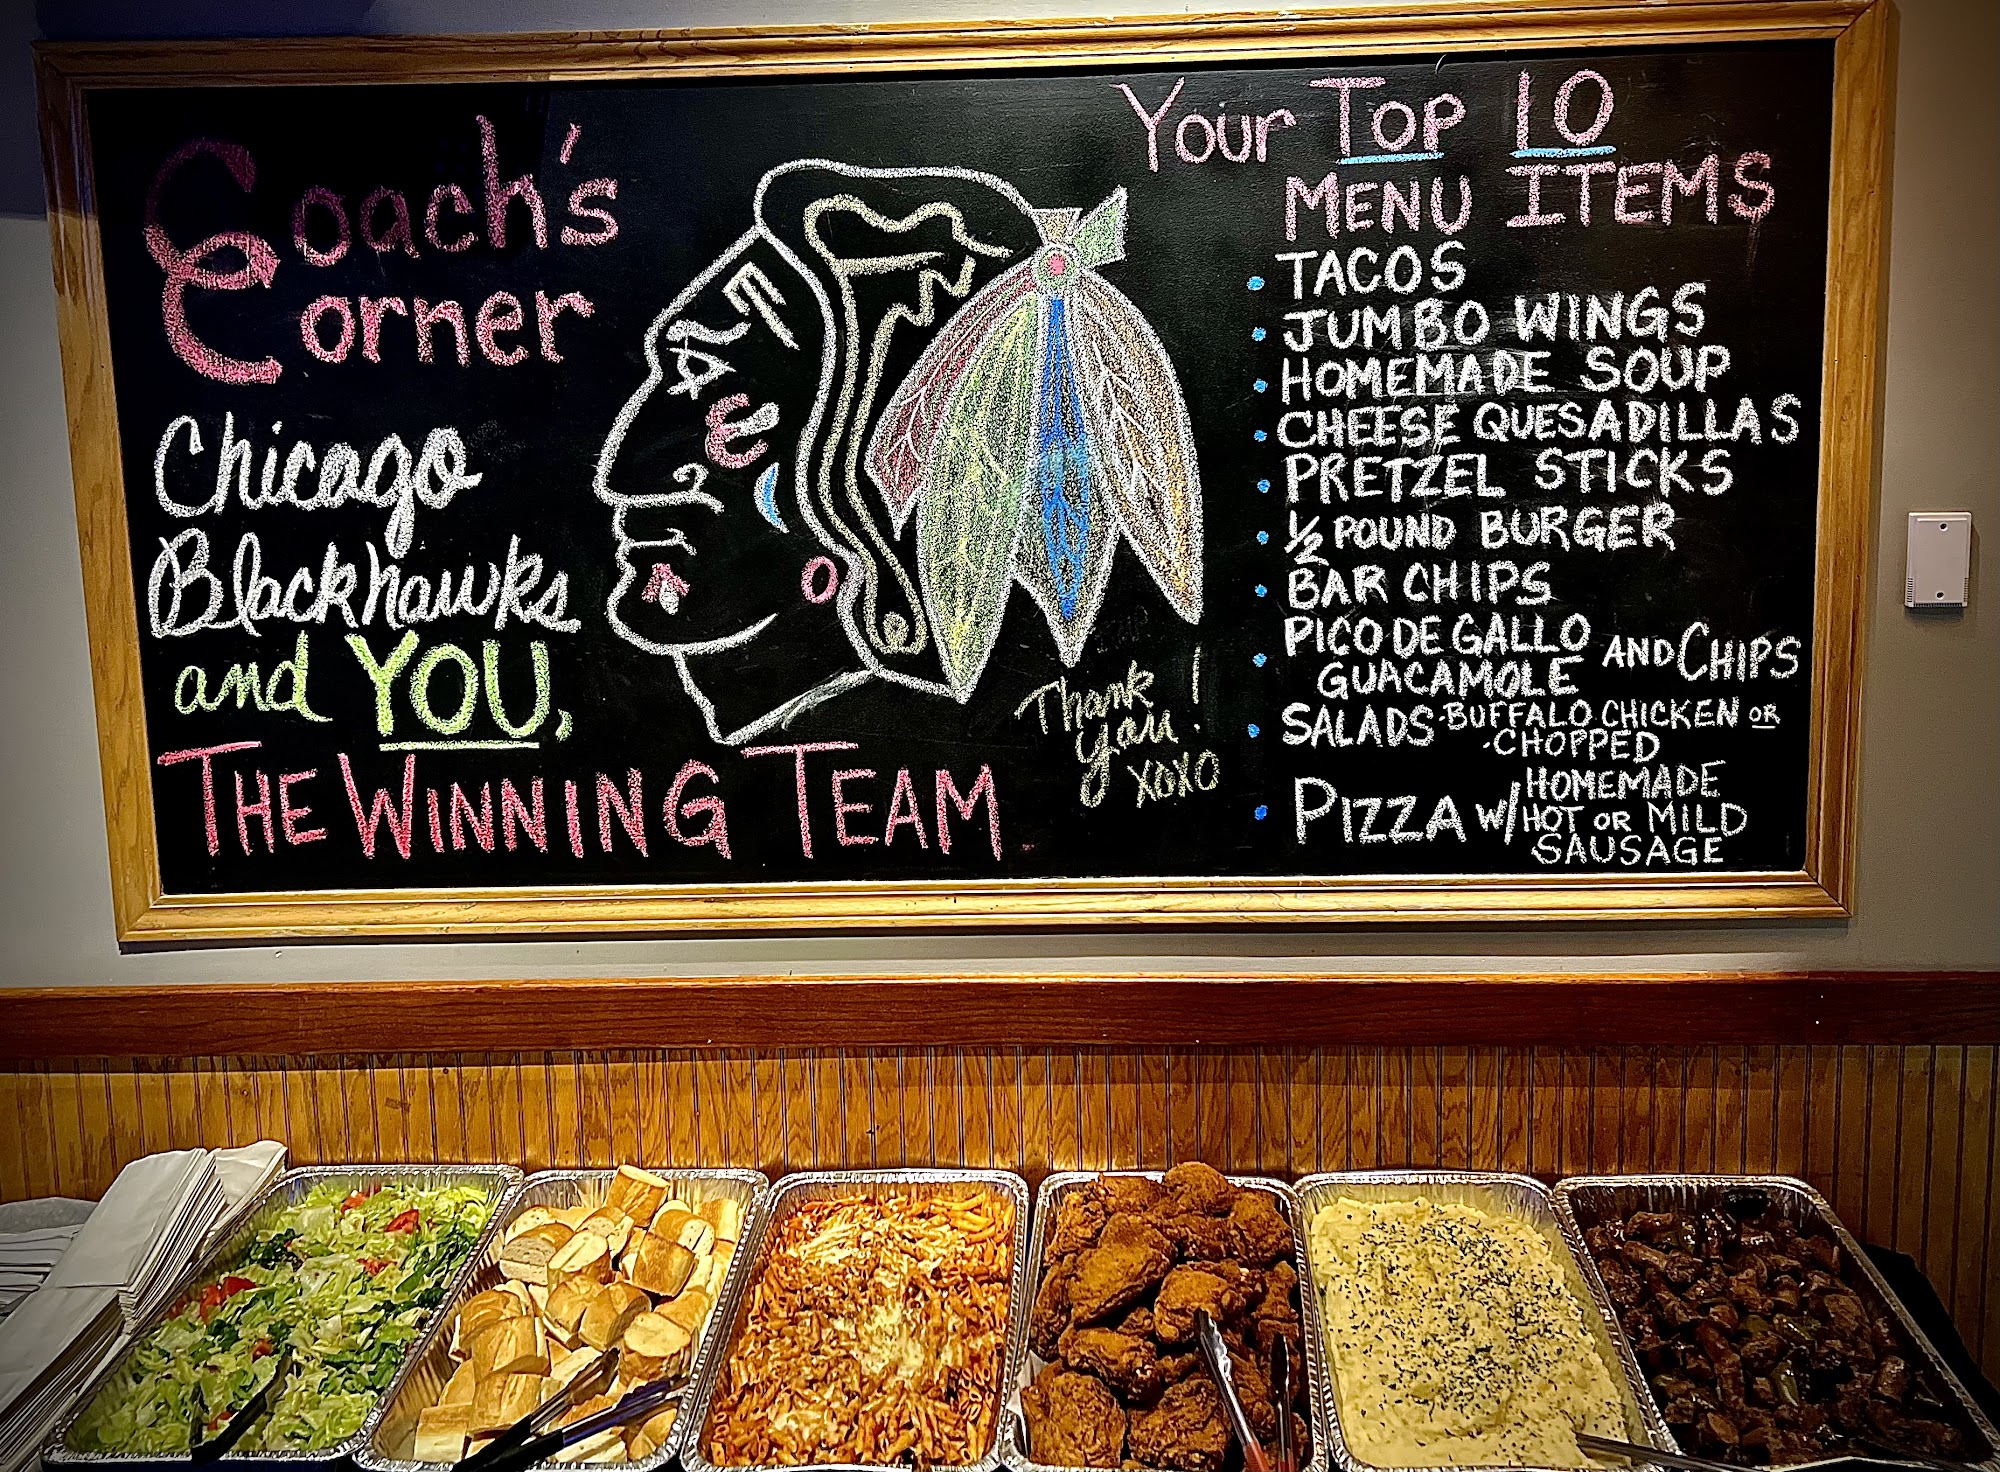 Coach's
Corner
Chicago
Blackhawks
and YOU,
THE WINNING TEAM
Thank
you!
XOXO
Your Top 10
MENU ITEMS
• TACOS
• JUMBO WINGS
• HOMEMADE SOUP
• CHEESE QUESADILLAS
• PRETZEL STICKS
• ½ POUND BURGER
• BAR CHIPS
• PICO DE GALLO AND CHIPS
GUACAMOLE
• SALADS ·BUFFALO CHICKEN OR
·CHOPPED
• PIZZA W/ HOMEMADE
HOT OR MILD
SAUSAGE